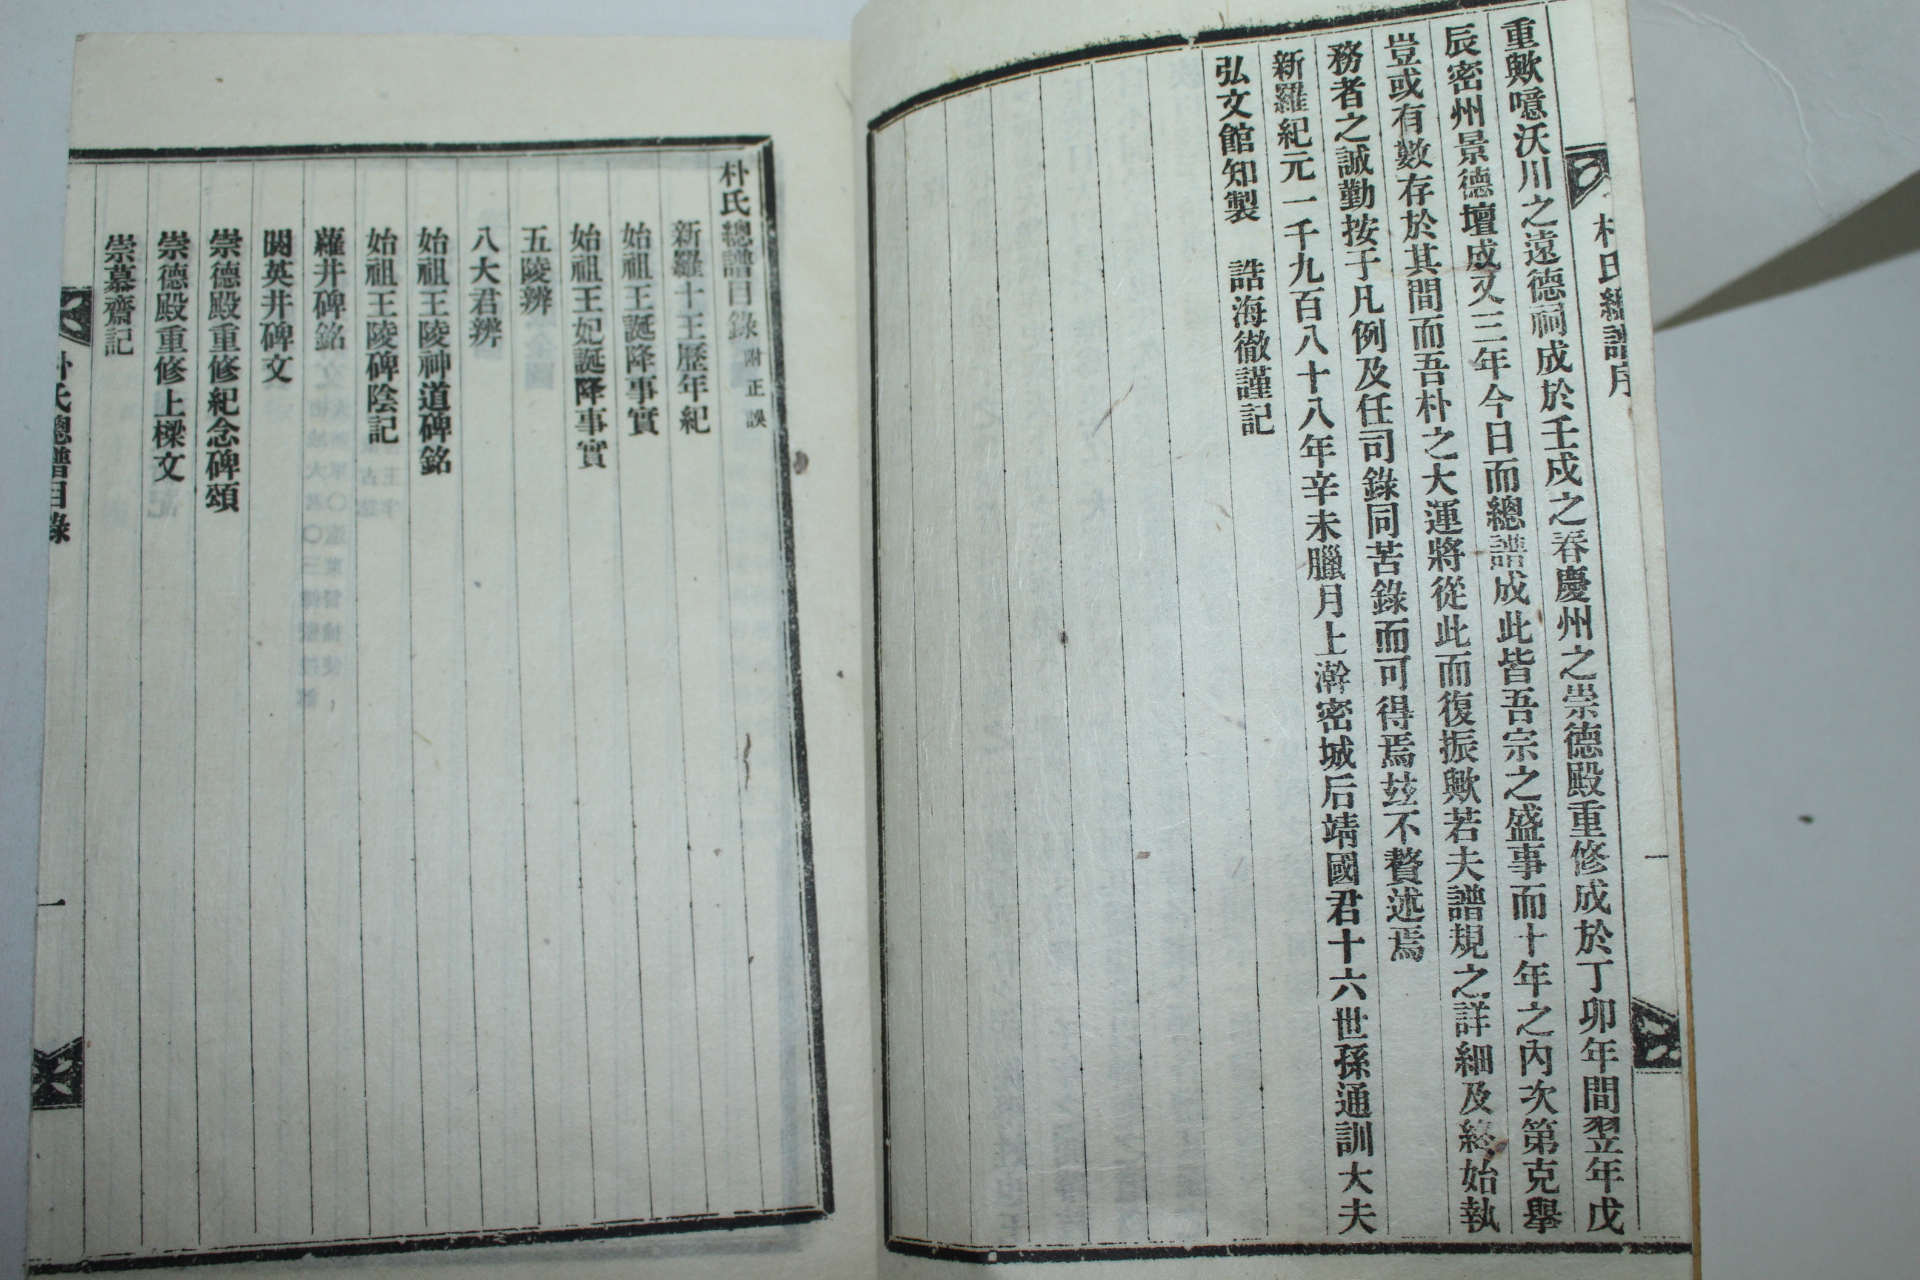 朴氏總譜序
一
重歟噫沃川之遠德祠成於壬戍之春慶州之崇德殿重修成於丁卯年間翌年戊
辰密州景德壇成又三年今日而總譜成此皆吾宗之盛事而十年之內次第克擧
豈或有數存於其間而吾朴之大運將從此而復振歟若夫譜規之詳細及終始執
務者之誠勤按于凡例及任司錄同苦錄而可得焉玆不贅述焉
新羅紀元一千九百八十八年辛未臘月上澣密城后靖國君十六世孫通訓大夫
弘文館知製 誥海徹謹記
朴氏總譜目錄 附正誤
新羅十王歷年紀
始祖王誕降事實
始祖王妃誕降事實
五陵辨
八大君辨
始祖王陵神道碑銘
始祖王陵碑陰記
蘿井碑銘
閼英井碑文
崇德殿重修紀念碑頌
崇德殿重修上樑文
崇慕齋記
朴氏總譜目錄
一